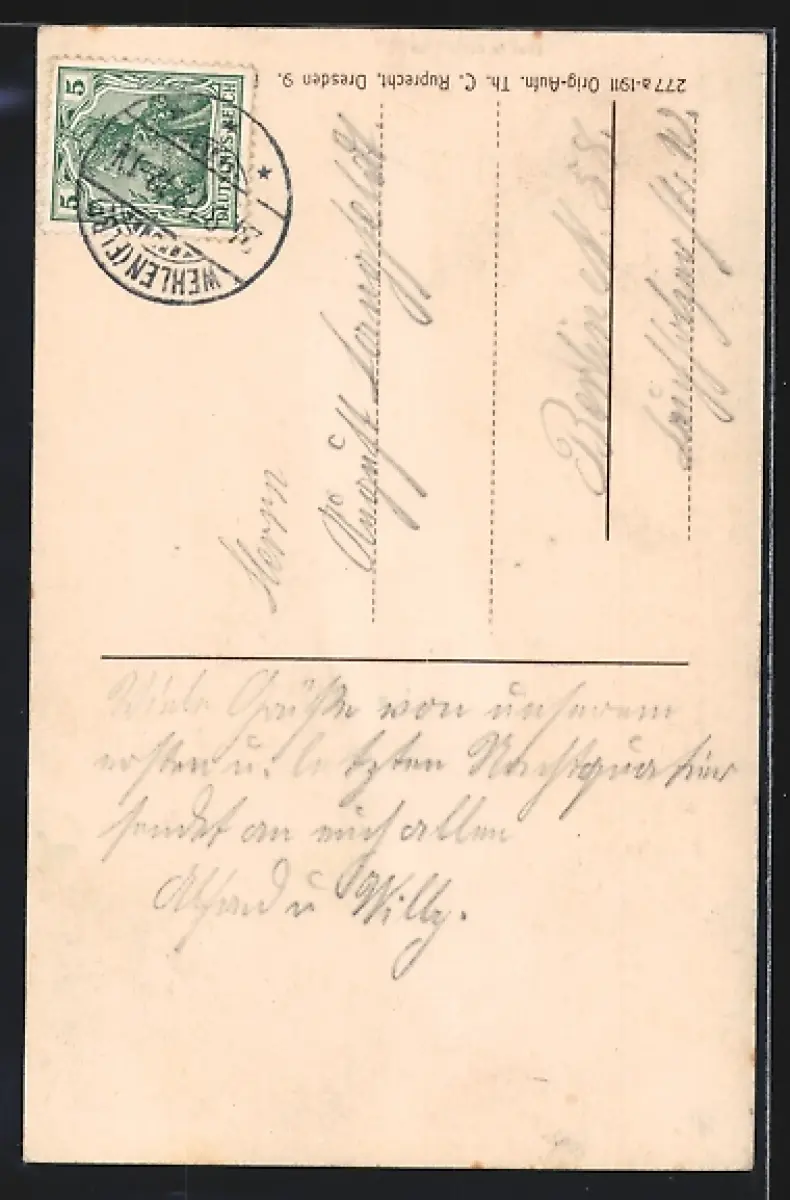 277a-1911 Orig-Aufn. Th. C. Ruprecht, Dresden 9.
5
5
DEUTSCHES REICH
WEHLEN (ELBE)
Herrn
August Langfeldt
Berlin N. 58.
Viele Grüße von unserem
ersten u. letzten Nachtquatier
sendet an euch allen
Alfred u Willy.